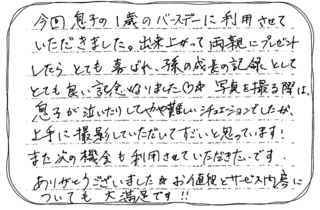 今回息子の1歳のバースデーに利用させて
いただきました。出来上がって両親にプレゼント
したらとても喜ばれ、孫の成長の記録として
とても良い記念なりました♡☆ 写真を撮る際は、
息子が泣いたりしてやや難しいシチュエーションでしたが、
上手に撮影していただいてすごいと思っています!
また次の機会も利用させていただきたいです。
ありがとうございました☆お値段とサービス内容
についても大満足です!!